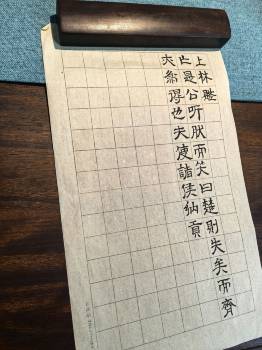 上林賦
亡是公听肰而笑曰楚則失矣而齊
為得也夫使諸侯納貢